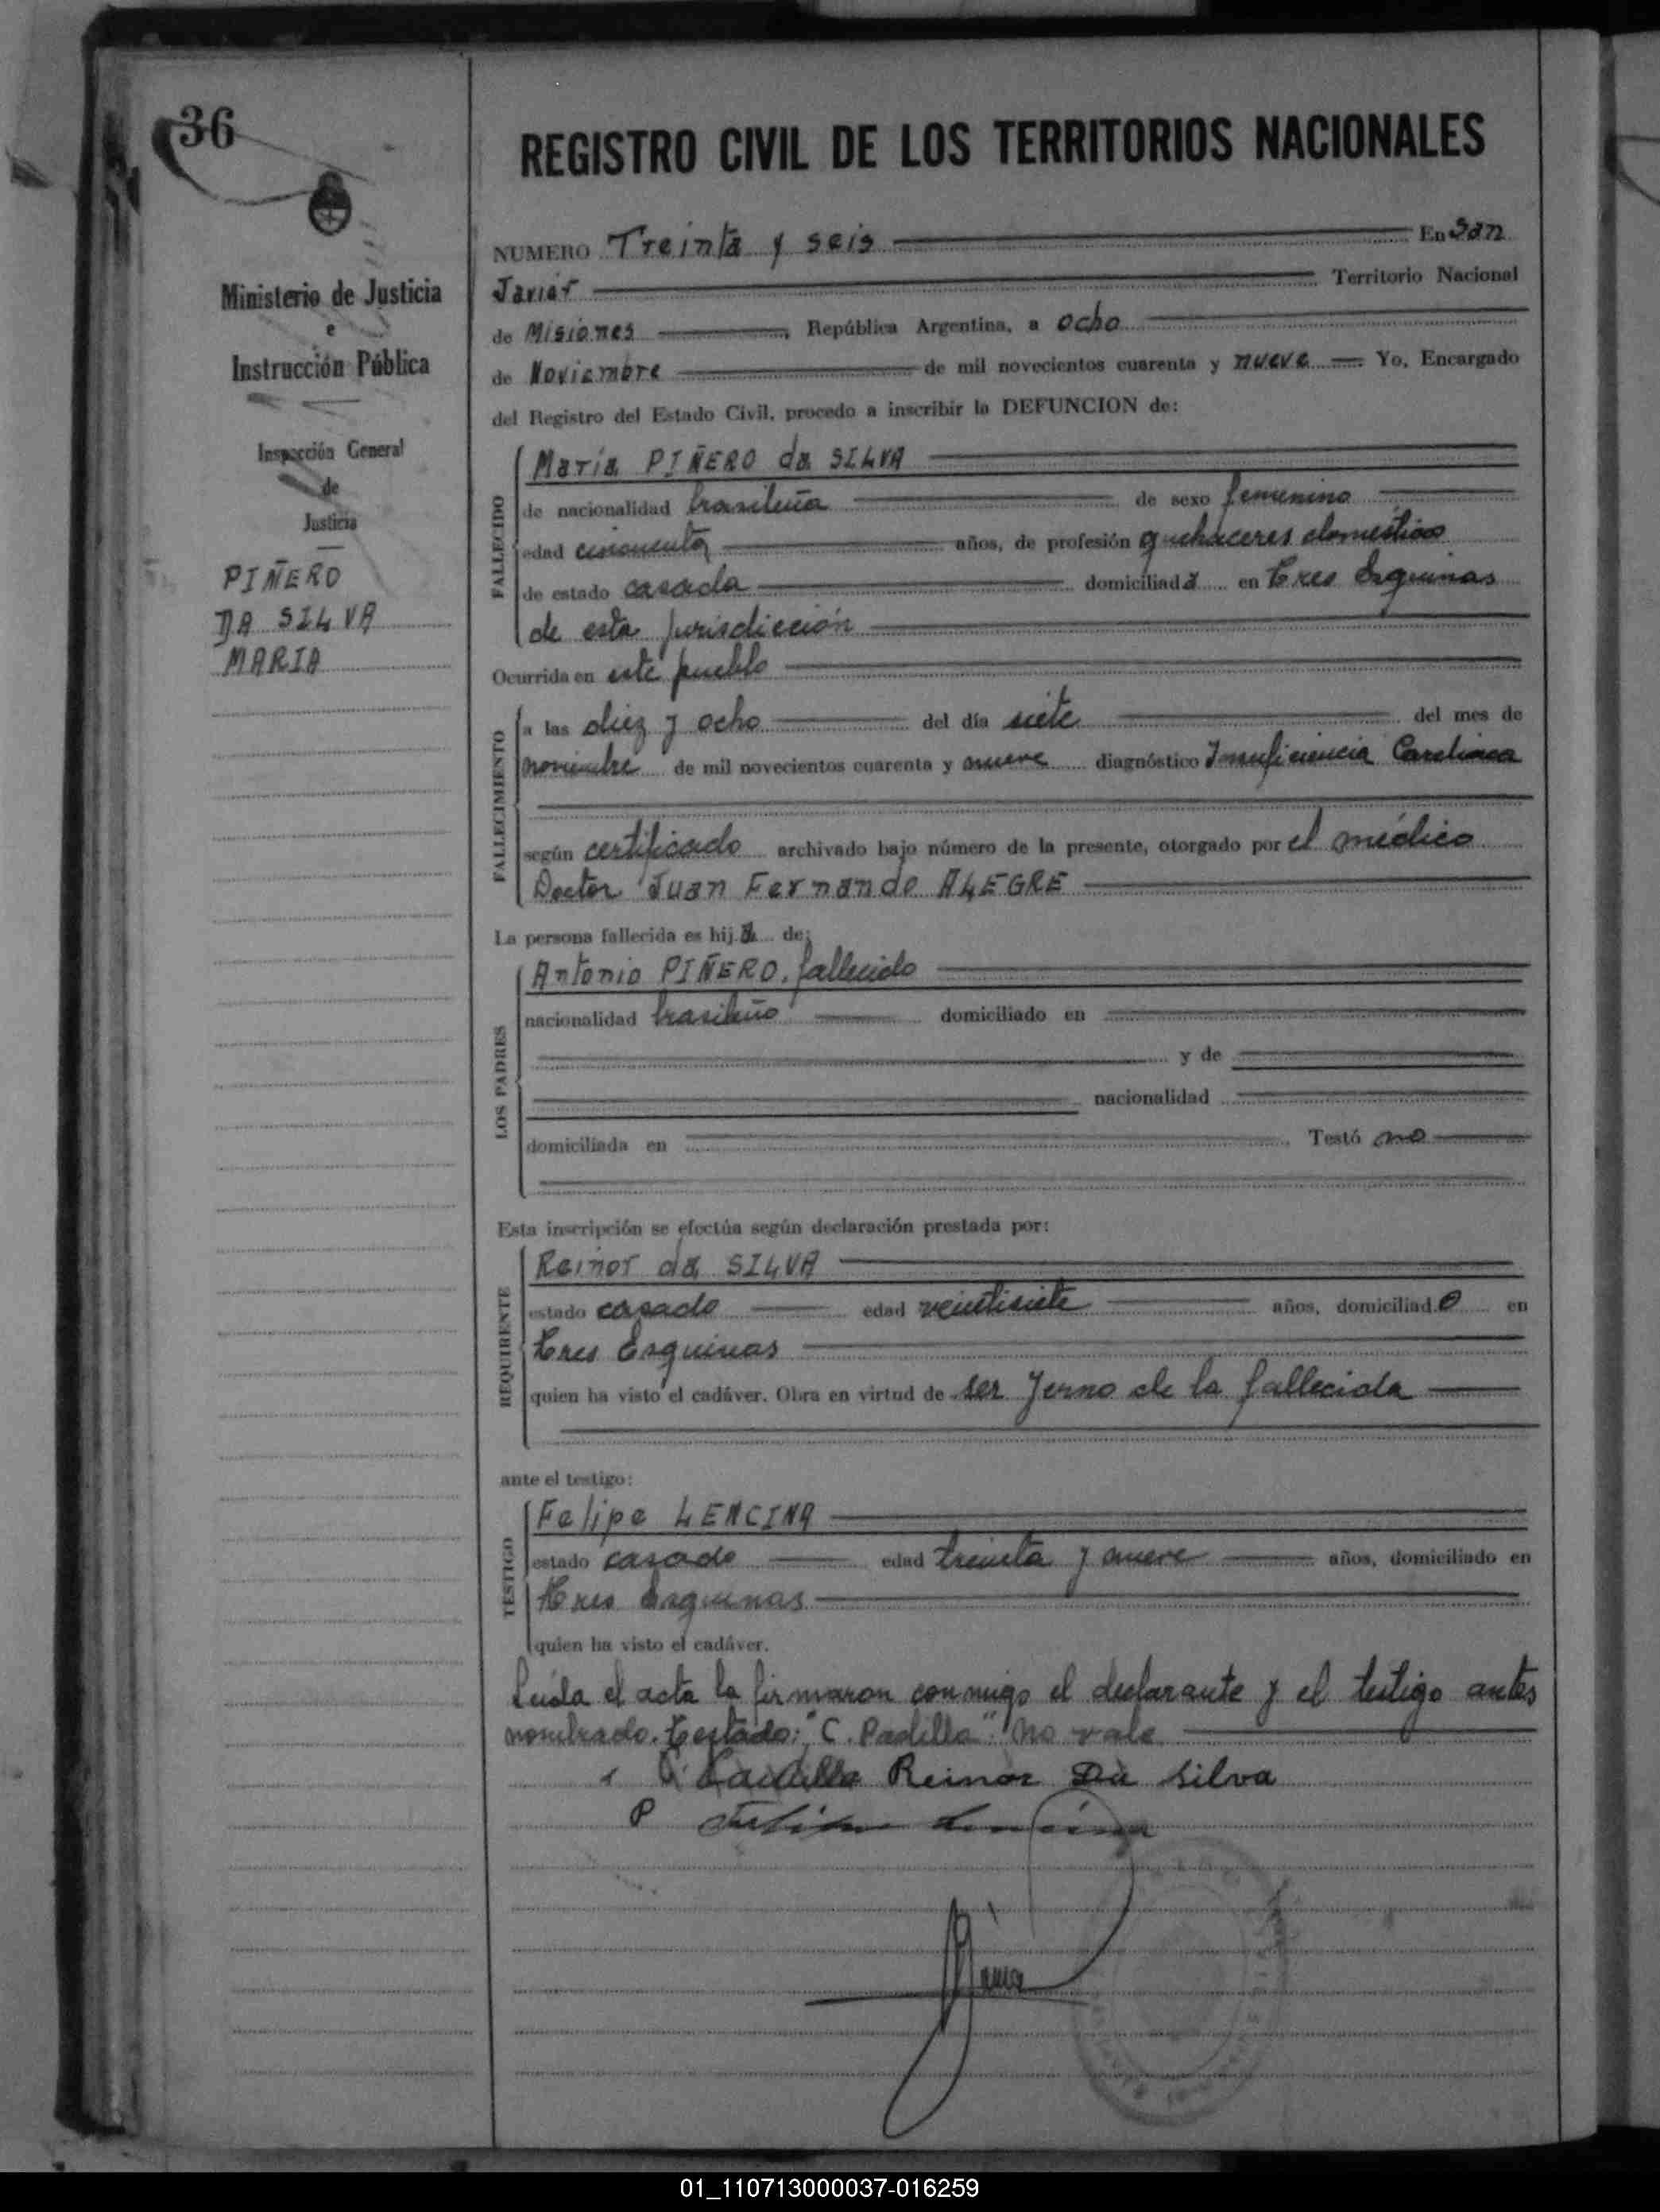 36
Ministerio de Justicia
e
Instrucción Pública
Inspección General
de
Justicia
PIÑERO
DA SILVA
MARIA
REGISTRO CIVIL DE LOS TERRITORIOS NACIONALES
NUMERO Treinta y seis En San
Javier Territorio Nacional
de Misiones, República Argentina, a ocho
de Noviembre de mil novecientos cuarenta y nueve Yo, Encargado
del Registro del Estado Civil, procedo a inscribir la DEFUNCION de:
FALLECIDO
María PIÑERO da SILVA
de nacionalidad brasileña de sexo femenino
edad cincuenta años, de profesión quehaceres domésticos
de estado casada domiciliada en tres Esquinas
de esta jurisdicción
Ocurrida en este pueblo
FALLECIMIENTO
a las diez y ocho del día siete del mes de
noviembre de mil novecientos cuarenta y nueve diagnóstico Insuficiencia Cardiaca
según certificado archivado bajo número de la presente, otorgado por el médico
Doctor Juan Fernando ALEGRE
La persona fallecida es hija de:
LOS PADRES
Antonio PIÑERO, fallecido
nacionalidad brasileño domiciliado en
y de
nacionalidad
domiciliada en Testó no
Esta inscripción se efectúa según declaración prestada por:
REQUIRENTE
Reinor da SILVA
estado casado edad veintisiete años, domiciliado en
tres Esquinas
quien ha visto el cadáver. Obra en virtud de ser yerno de la fallecida
ante el testigo:
TESTIGO
Felipe LENCINA
estado casado edad treinta y nueve años, domiciliado en
tres Esquinas
quien ha visto el cadáver.
Leída el acta la firmaron conmigo el declarante y el testigo antes
nombrado. testado: "C. Padilla" no vale
C. Padilla Reinor Da Silva
01_110713000037-016259